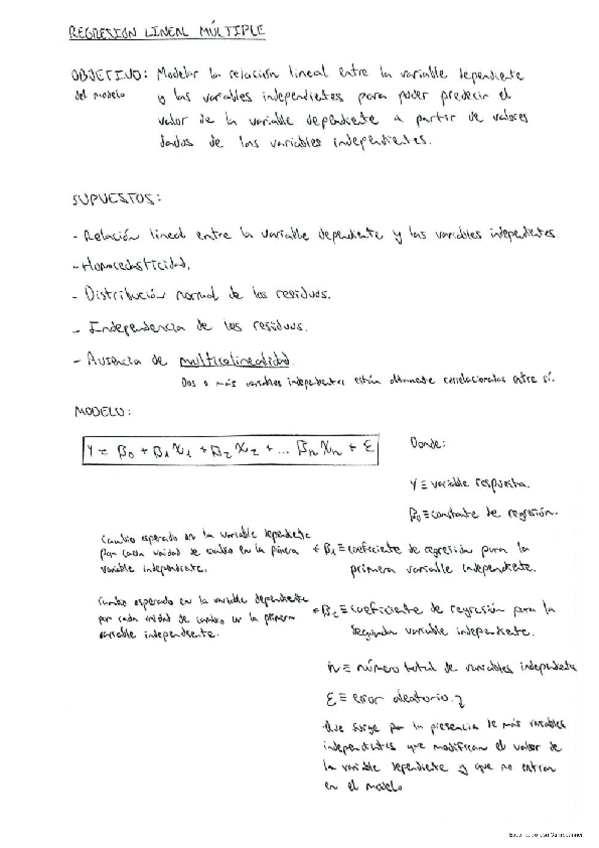 REGRESIÓN LINEAL MÚLTIPLE
OBJETIVO: Modelar la relación lineal entre la variable dependiente
del modelo y las variables independientes para poder predecir el
valor de la variable dependiente a partir de valores
dados de las variables independientes.
SUPUESTOS:
- Relación lineal entre la variable dependiente y las variables independientes.
- Homocedasticidad.
- Distribución normal de los residuos.
- Independencia de los residuos.
- Ausencia de multicolinealidad
Dos o más variables independientes están altamente correlacionadas entre sí.
MODELO:
Y = β0 + β1 X1 + β2 X2 + ... βn Xn + ε
Donde:
Y ≡ variable respuesta.
β0 ≡ constante de regresión.
Cambio esperado en la variable dependiente
por cada unidad de cambio en la primera
variable independiente.
← β1 ≡ coeficiente de regresión para la
primera variable independiente.
Cambio esperado en la variable dependiente
por cada unidad de cambio en la primera
variable independiente.
← β2 ≡ coeficiente de regresión para la
segunda variable independiente.
n ≡ número total de variables independientes
ε ≡ error aleatorio.
Que surge por la presencia de más variables
independientes que modifican el valor de
la variable dependiente y que no entran
en el modelo